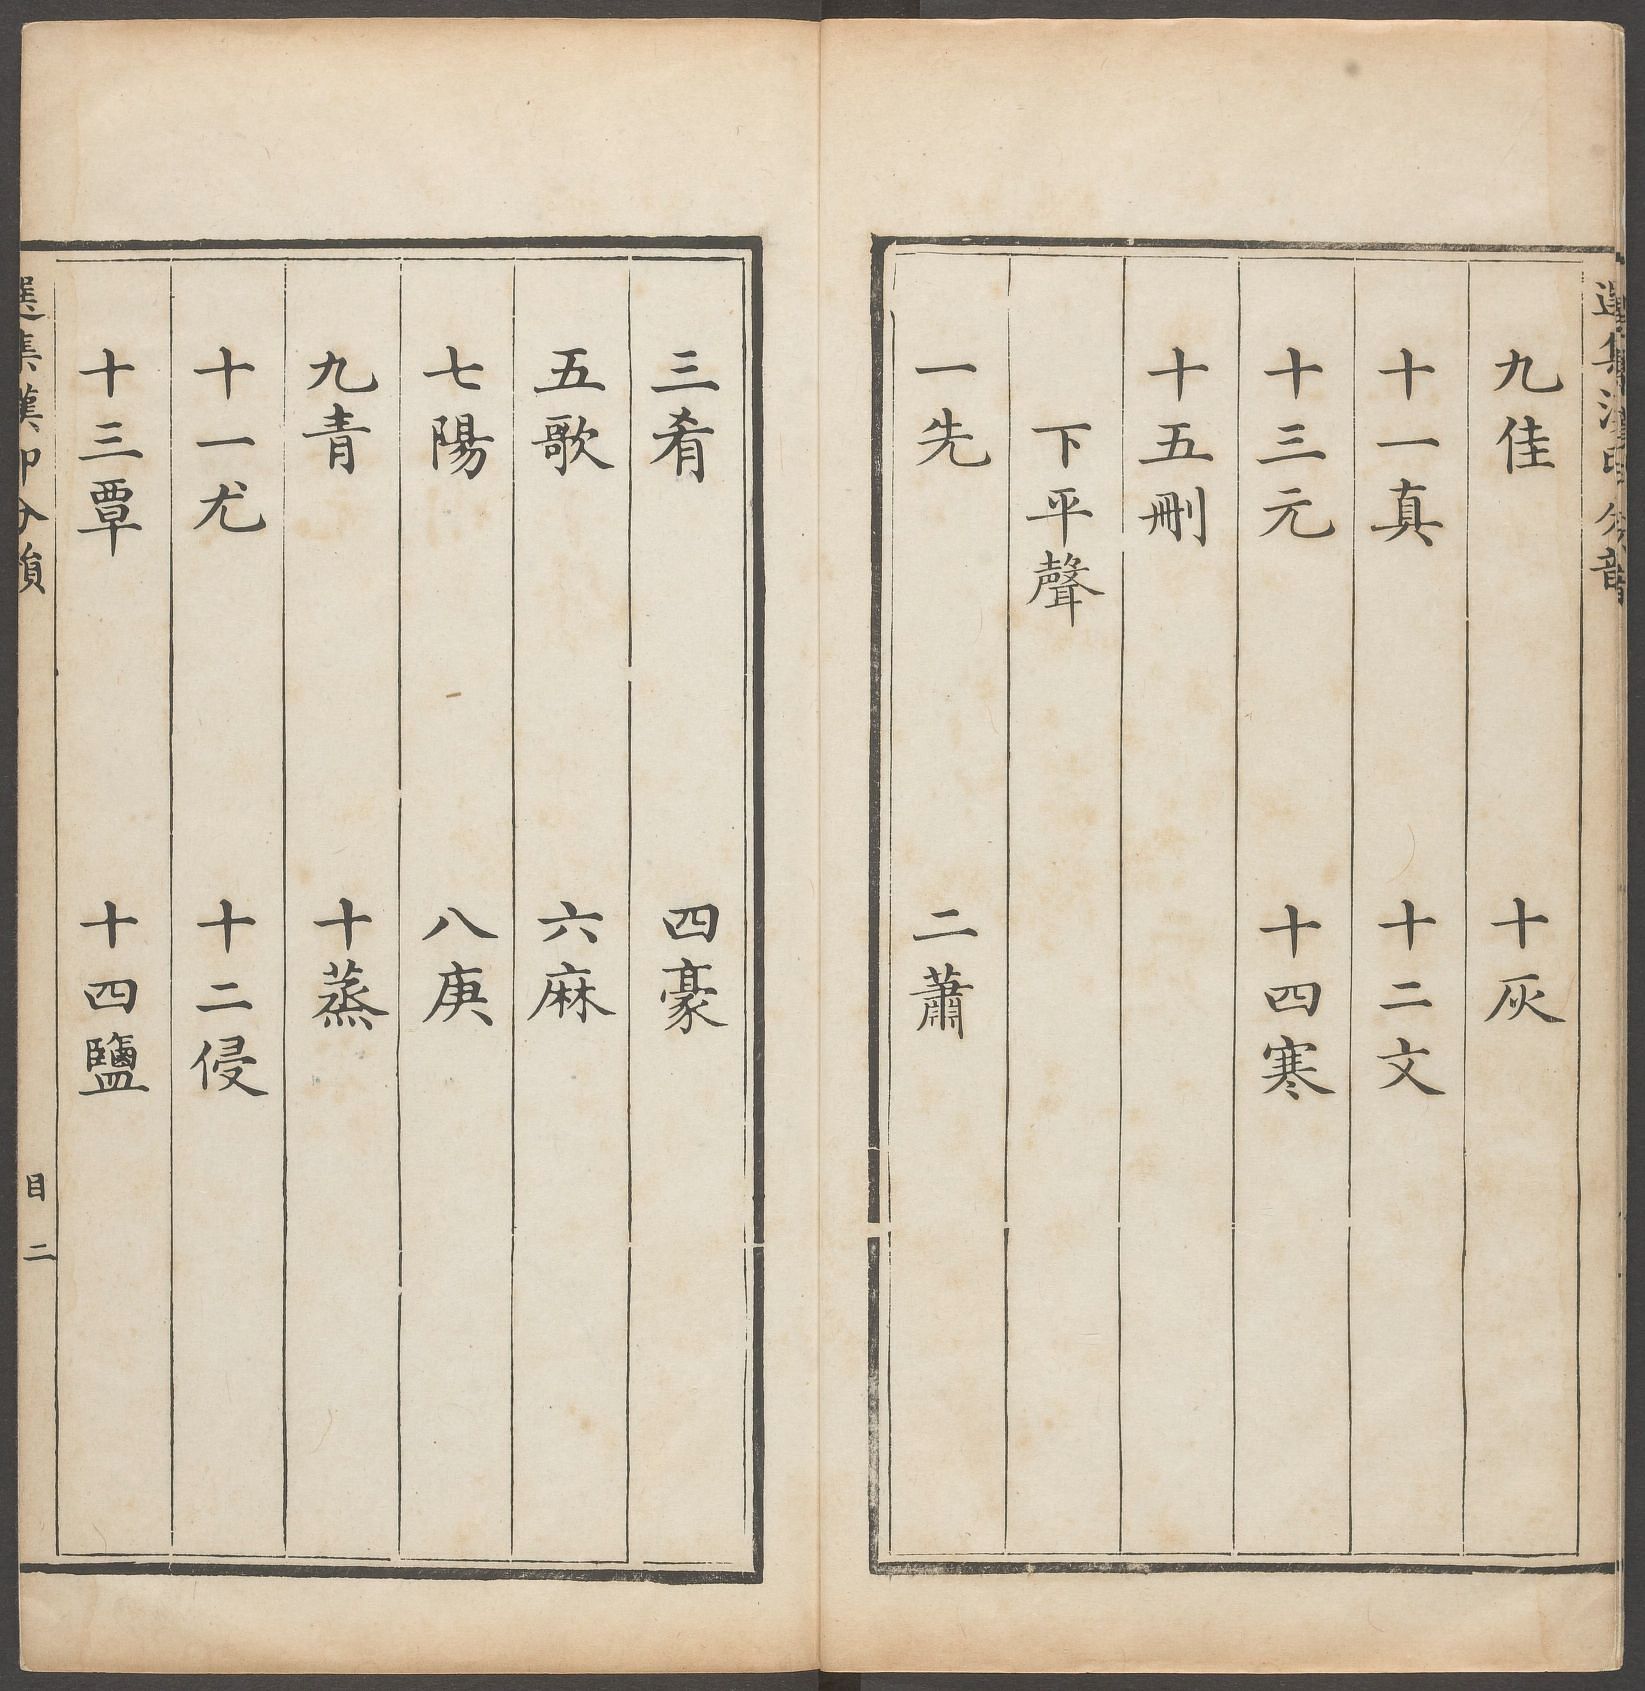 選集漢印分韻
九佳　十灰
十一真　十二文
十三元　十四寒
十五刪
下平聲
一先　二蕭
三肴　四豪
五歌　六麻
七陽　八庚
九青　十蒸
十一尤　十二侵
十三覃　十四鹽
選集漢印分韻　目　二